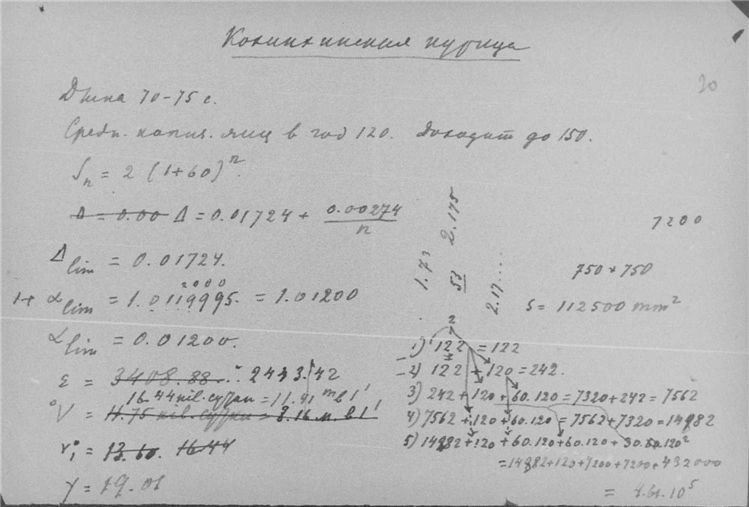 Кохинхинская курица
20
Длина 70-75 с.
Средн. колич. яиц в год 120. Доходит до 150.
Sn = 2 (1+60)^n
Δ = 0.00 Δ = 0.01724 + 0.00274/n
Δ lim = 0.01724.
2000
1+ α lim = 1.0119995. = 1.01200
α lim = 0.01200.
ε = 3408.88... 2443.42
16.44 kil. сутки = 11.41 m в 1'
V = 11.75 kil. сутки = 8.16 м. в 1'
= 13.60. 16.44
γ = 19.01
1.73
53 2.175
2.17....
7200
750 × 750
S = 112500 mm²
2
1) 122 = 122
2) 122 + 120 = 242.
3) 242 + 120 + 60.120 = 7320 + 242 = 7562
4) 7562 + 120 + 60.120 = 7562 + 7320 = 14882
5) 14882 + 120 + 60.120 + 60.120 + 30.60.120²
= 14882 + 120 + 7200 + 7200 + 432000
= 4.61.10⁵